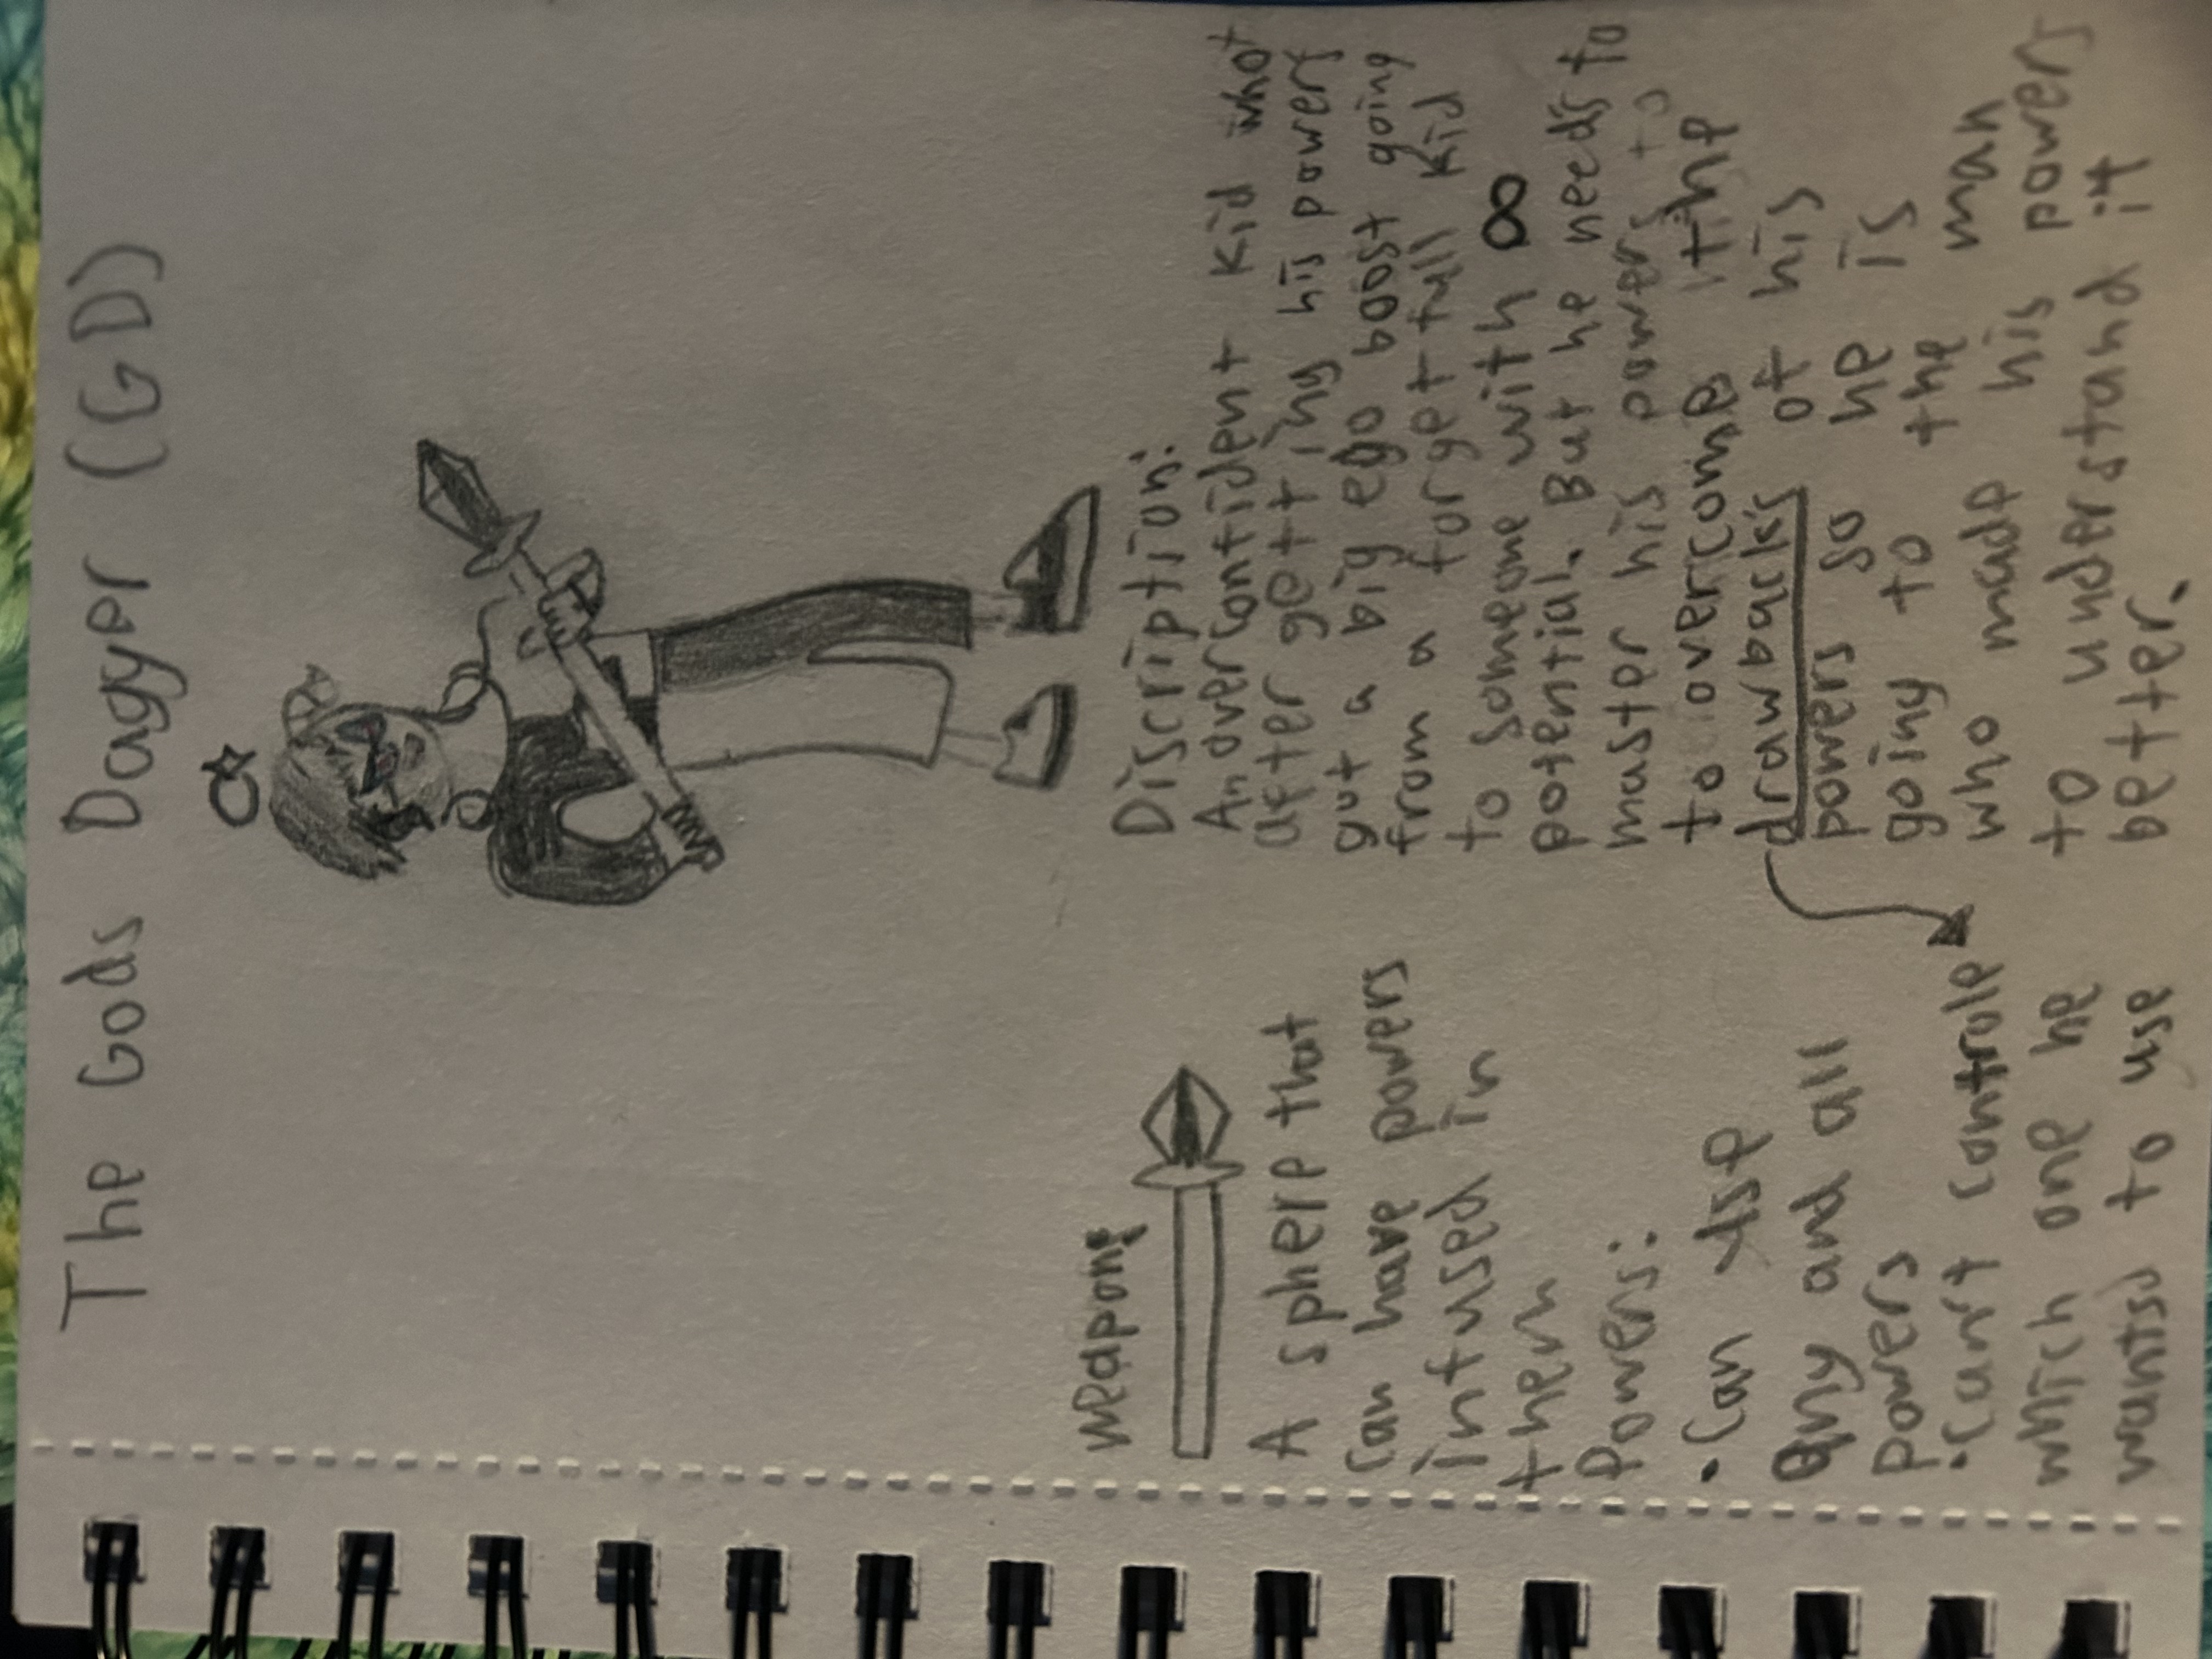 The Gods Dagger (GD)
Weapons
A sphere that
can have powers
infused in
them
Powers:
• Can use
any and all
powers
• Can't controle
which one he
wants to use
Discription:
An overconfident kid whot
after getting his powers
got a big ego boost going
from a forgetfull kid
to someone with ∞
potential. But he needs to
master his powers to
to overcome the
drawback's of his
powers so he is
going to the man
who made his powers
to understand it
better.